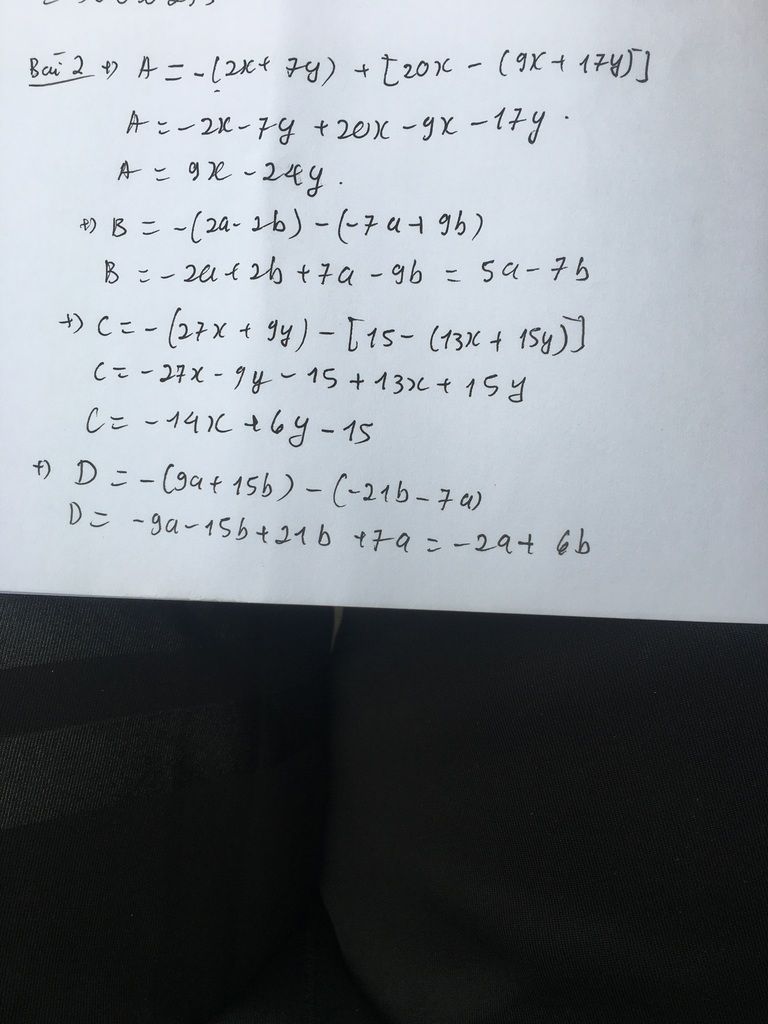 Bài 2 +) A = -(2x + 7y) + [20x - (9x + 17y)]
A = -2x - 7y + 20x - 9x - 17y.
A = 9x - 24y.
+) B = -(2a - 2b) - (-7a + 9b)
B = -2a + 2b + 7a - 9b = 5a - 7b
+) C = -(27x + 9y) - [15 - (13x + 15y)]
C = -27x - 9y - 15 + 13x + 15y
C = -14x + 6y - 15
+) D = -(9a + 15b) - (-21b - 7a)
D = -9a - 15b + 21b + 7a = -2a + 6b